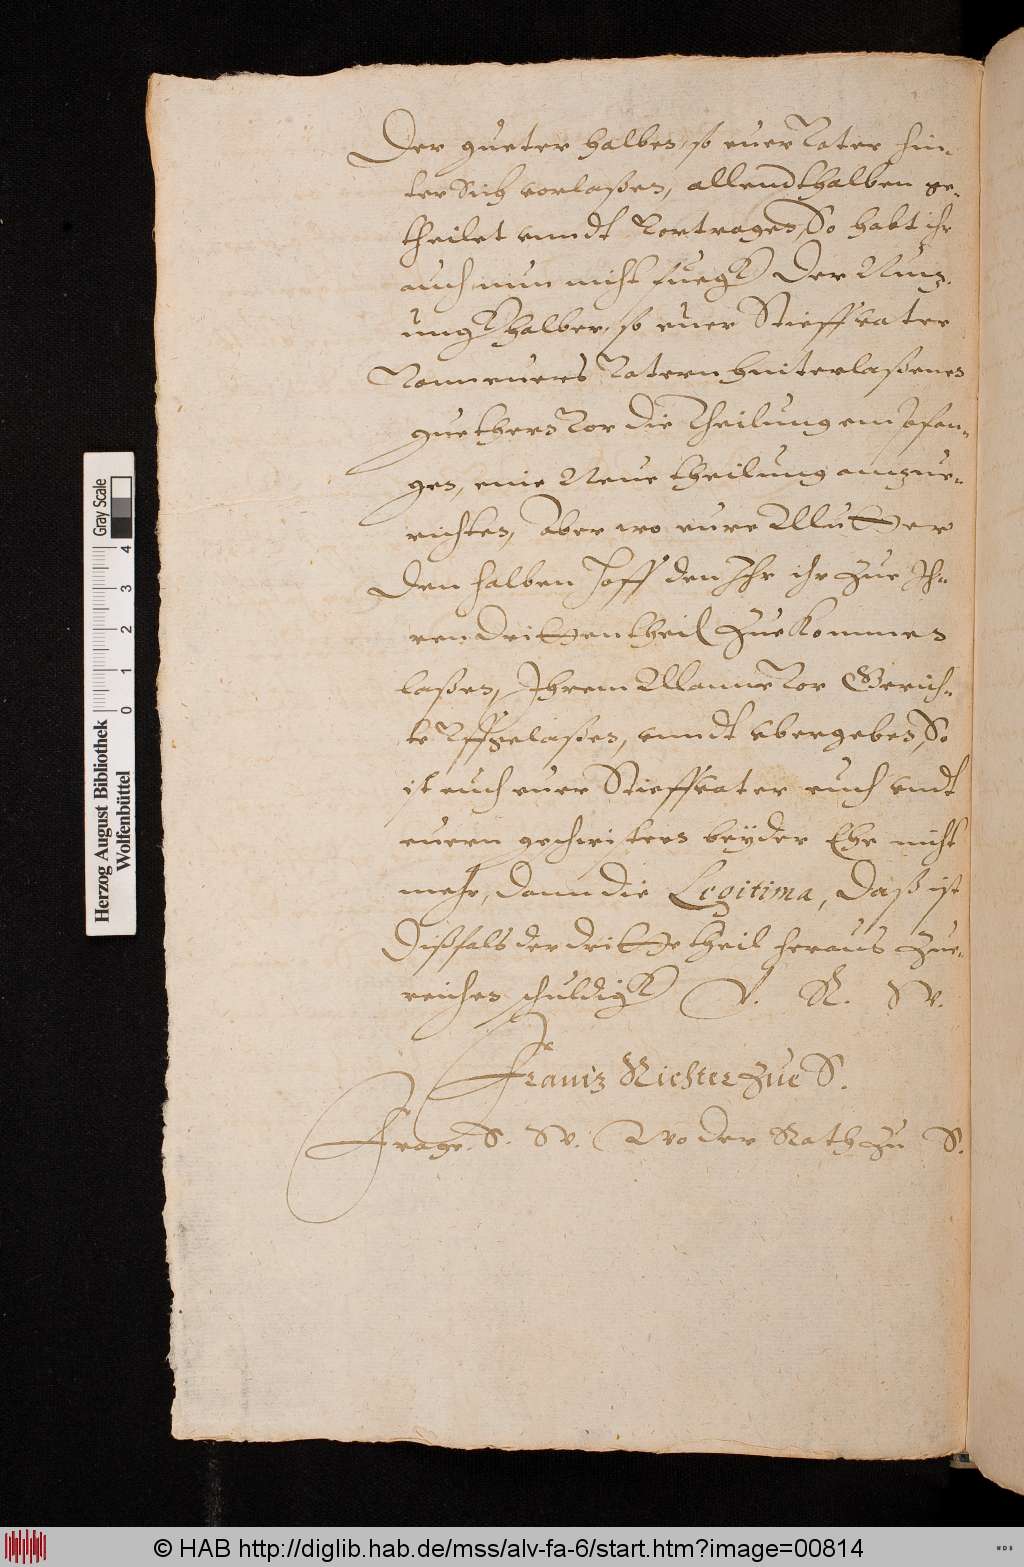 Der gueter halben, so euer Vater hin-
ter Sich vorlaßen, allendthalben ge-
theilet vnndt Vortragen, So habt ihr
auch nun nicht fueg Der Nuz-
ung halber, so euer Stieffvater
Vonn euers Vatern hinterlaßenen
guethern Vor die Theilung empfan-
gen, eine Neue theilung anzue-
richten, Aber wo eure Mutter
Den halben Hoff den Ihr ihr zue Ih-
ren dritten theil zuekommen
laßen, Ihrem Manne Vor Gerich-
te Vffgelaßen, vnndt vbergeben, So
ist auch euer Stieffvater euch vndt
euern geschwistern beÿder Ehe nicht
mehr, dann die Legitima, Daß ist
Dißfals der dritte theil heraus zue-
reichen schuldig V. R. W.
Frantz Richter zue S.
Frage. S. W. Wo der Rath zu S.
Herzog August Bibliothek
Wolfenbüttel
0 1 2 3 4
Gray Scale
© HAB http://diglib.hab.de/mss/alv-fa-6/start.htm?image=00814
WDB